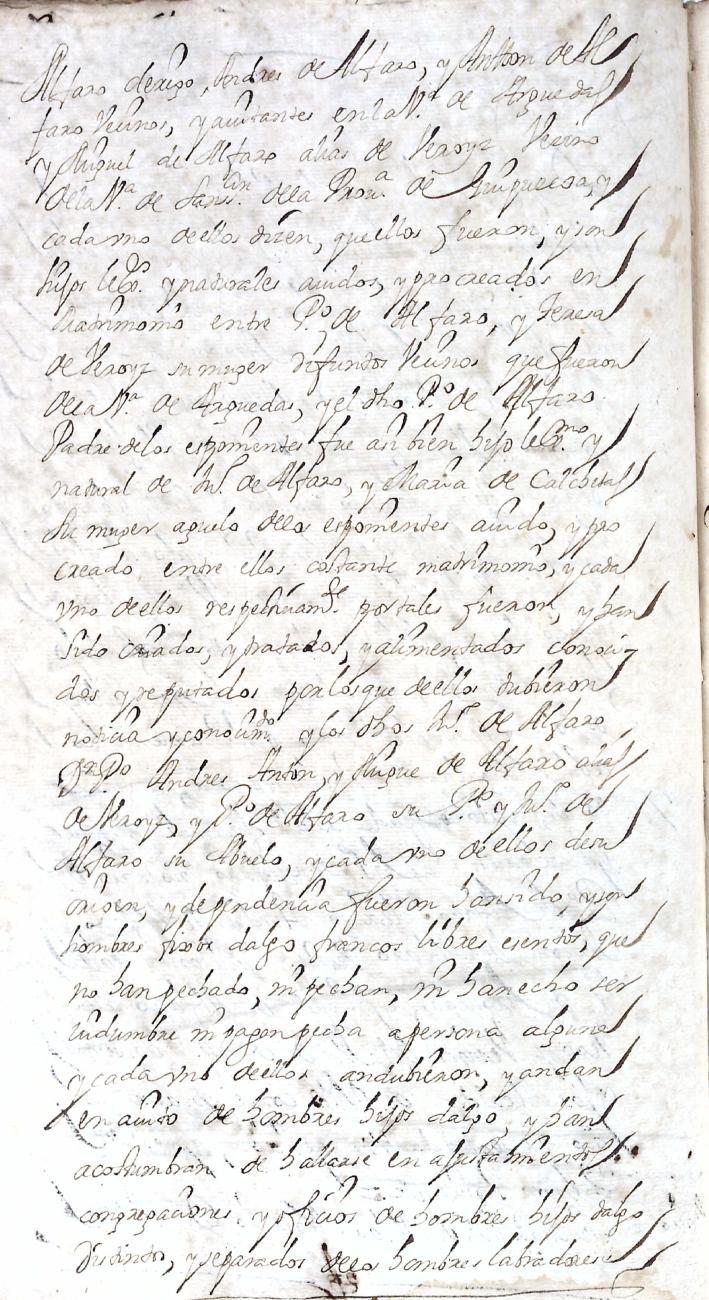 Alfaro clerigo, Andres de Alfaro, y Anton de Al
faro Vecinos, y auitantes en la V.ª de Arguedas
y Miguel de Alfaro alias de Veroyz Vecino
de la V.ª de Sans.tin de la Prou.ª de Guipuzcoa, y
cada vno de ellos dizen, que ellos fueron, y son
hijos leg.mos y naturales auidos, y procreados en
Matrimonio entre P.º de Alfaro, y Teresa
de Veroyz su muger difuntos Vecinos que fueron
de la V.ª de Arguedas, y el dho P.º de Alfaro
Padre de los esponientes fue asi bien hijo leg.mo y
natural de Ju.º de Alfaro, y Maria de Calchetas
su muger aguelo de los esponientes auido, y pro
creado entre ellos costante matrimonio, y cada
vno de ellos respectiuam.te por tales fueron, y han
sido criados, y tratados, y alimentados conoci-
dos y reputados por los que de ellos tubieron
noticia y conocim.to y los dhos Ju.º de Alfaro
Andres Anton, y Migue de Alfaro alias
de Veroyz, y P.º de Alfaro su P.e y Ju.º de
Alfaro su Abuelo, y cada vno de ellos de su
origen, y dependencia fueron han sido, y son
hombres fixos dalgo francos libres esentos, que
no han pechado, ni pechan, ni han echo ser
uidumbre ni pagan pecha a persona alguna
y cada vno de ellos andubieron, y andan
en auito de hombres hijos dalgo, y han
acostumbran de hallarse en ajustamientos
congregaciones, y oficios de hombres hijos dalgo
distintos, y separados de los hombres labradores